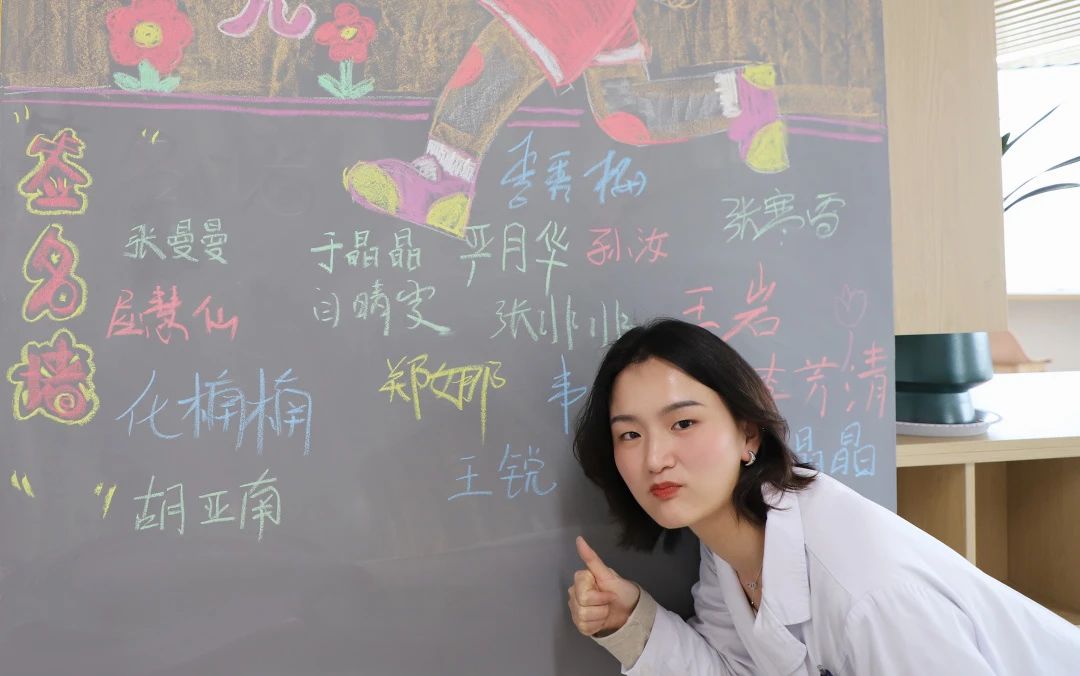 签名墙
李秀梅
张寒香
张曼曼 于晶晶 严月华 孙汝
屈慧仙 闫晴雯 张非非 王岩
化楠楠 郑娜 韦 李芳清
王锐 晶晶
胡亚南